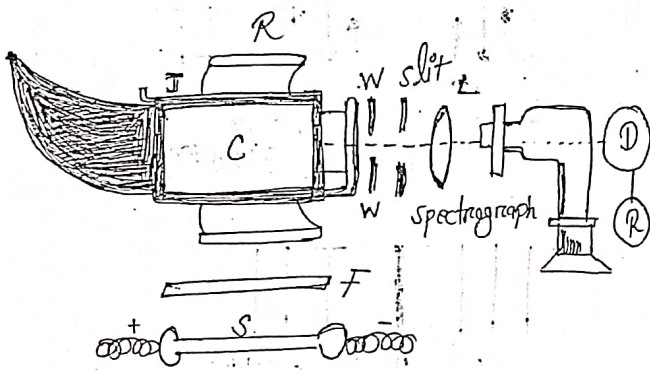 R
J
W
slit
L
C
D
W
spectrograph
R
F
+
S
-